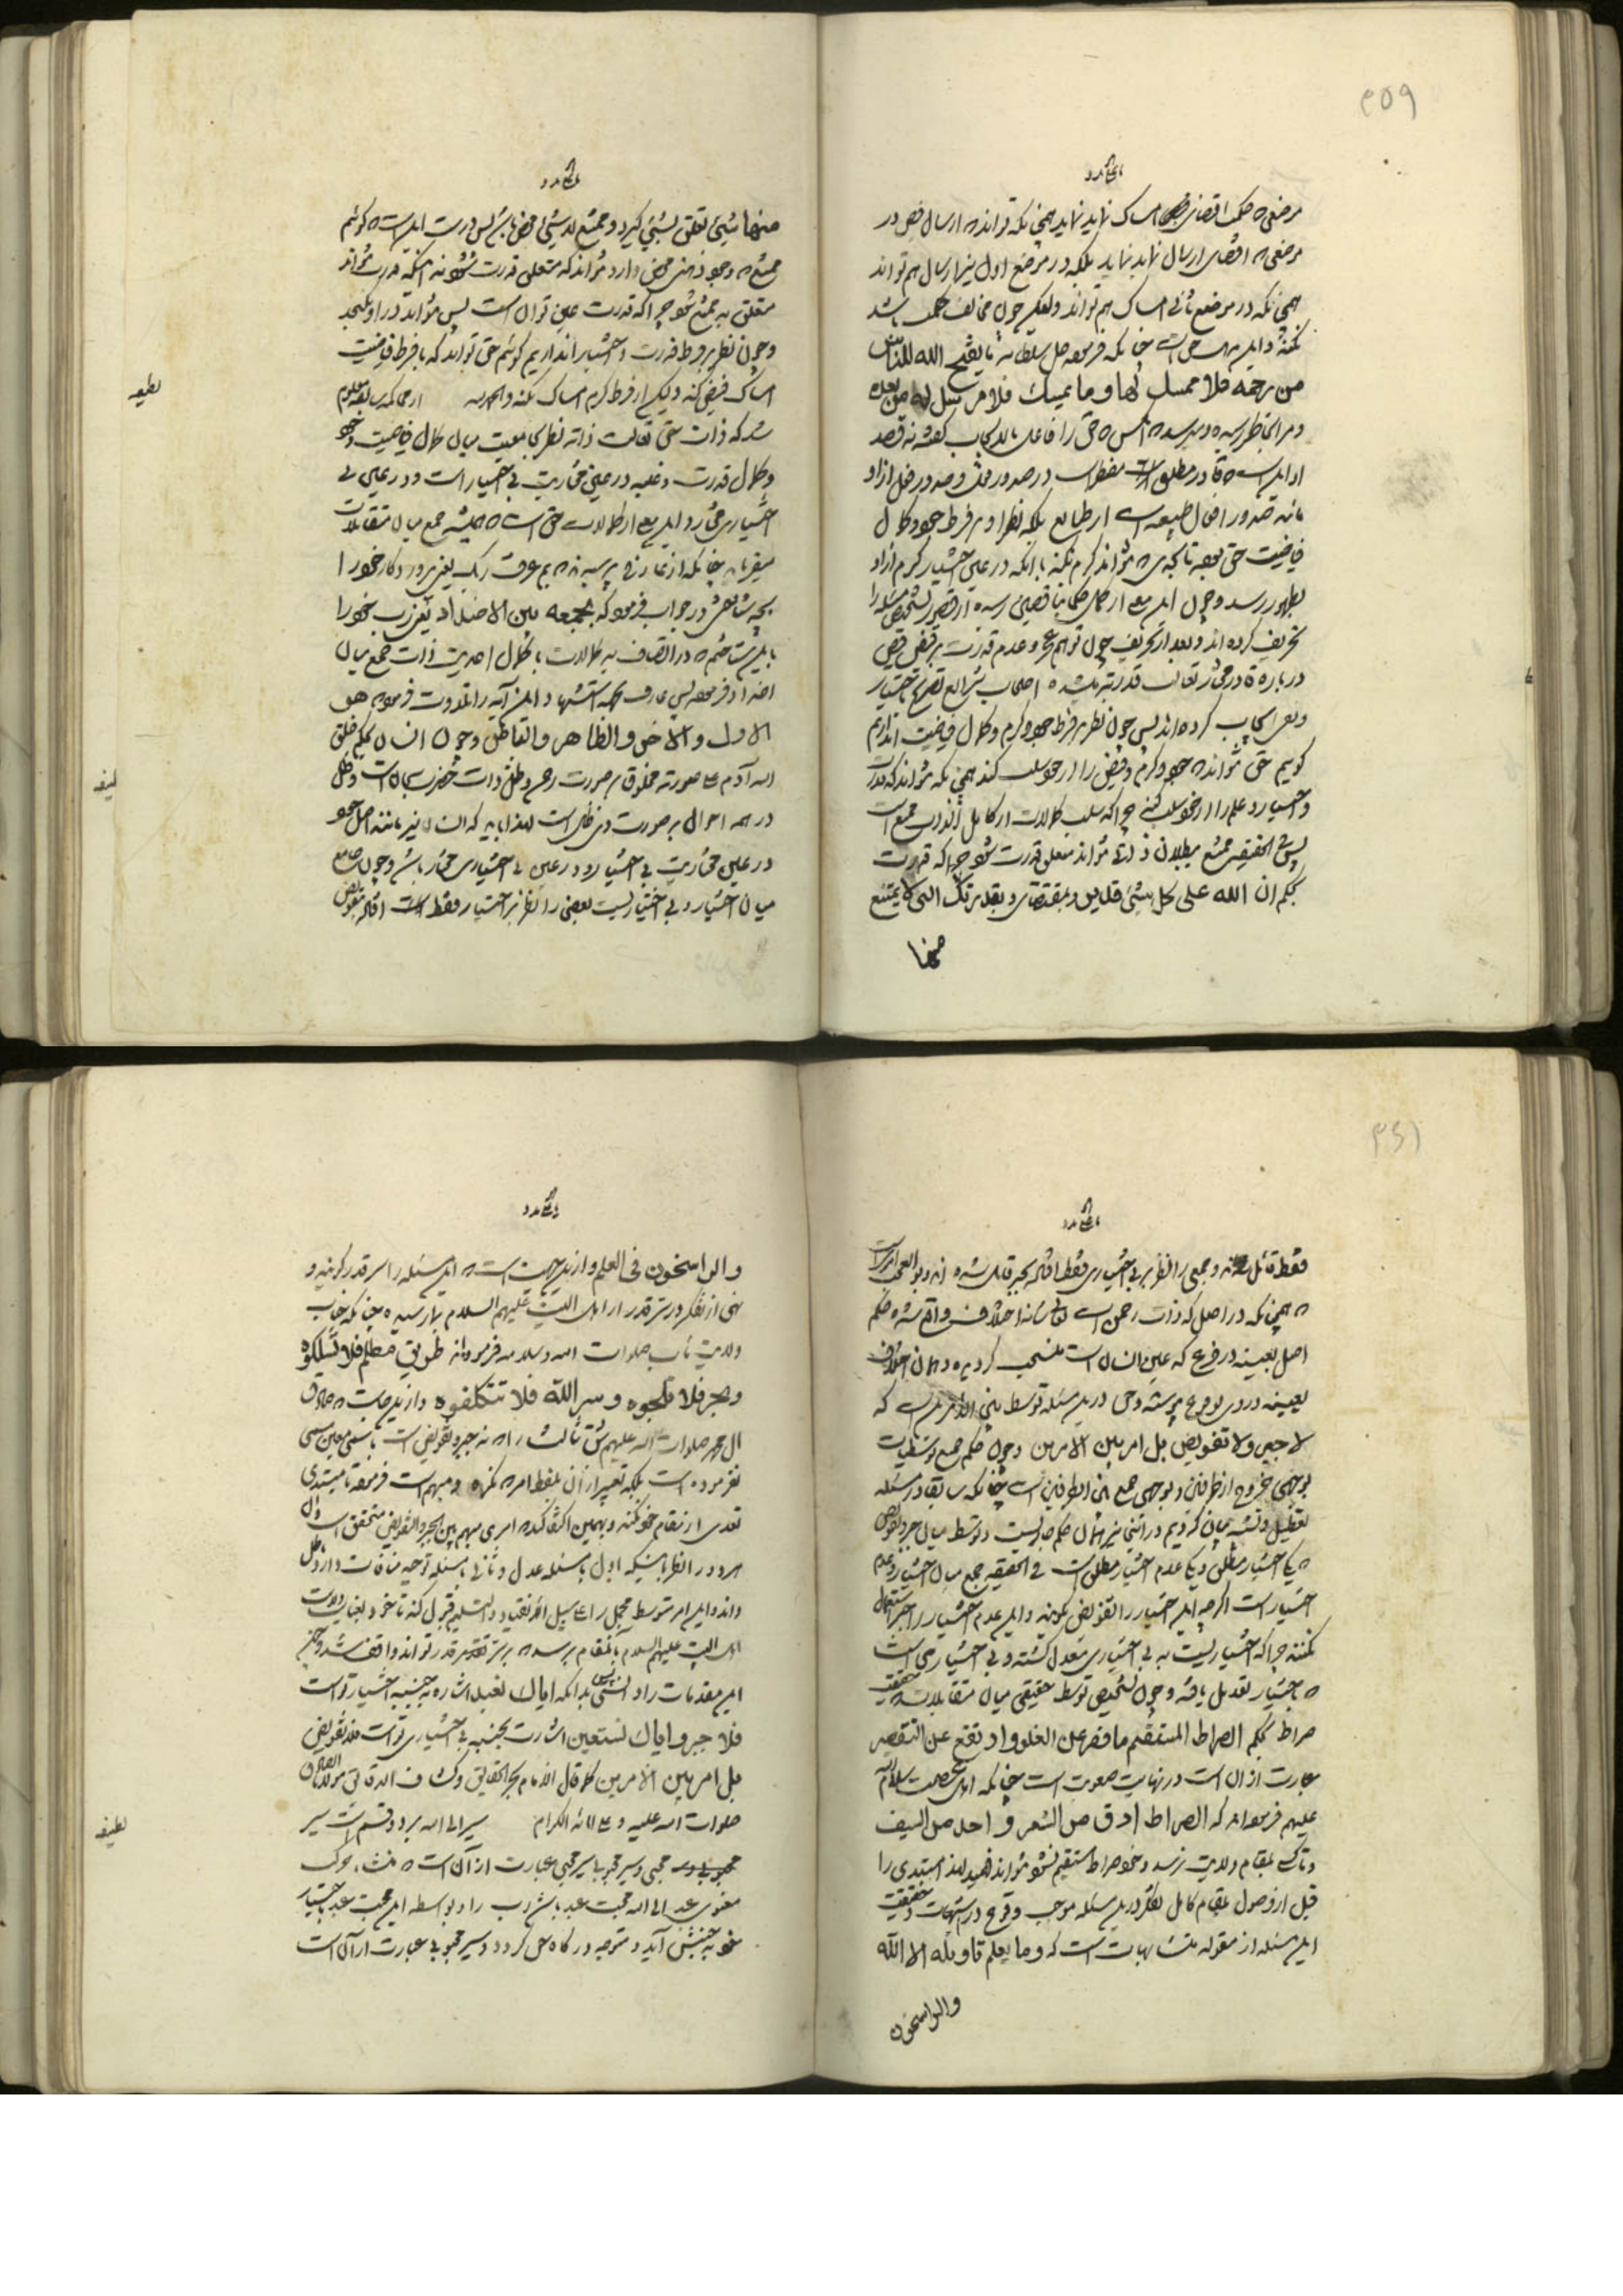 ۳۵۹
عقاید
موضعی که حکمت اقتضای امساک نماید نماید همچنانکه تواند که ارسال فیض در
موضعی که اقتضای ارسال نماید نماید بلکه در موضع اول نیز ارسال هم تواند
همچنانکه در موضع ثانی امساک هم تواند ولیکن چون مخالف حکمت باشد
نکند و این است چنانکه فرموده جل سلطانه ما یفتح الله للناس
من رحمة فلا ممسک لها وما یمسک فلا مرسل له من بعده
و مرا بخاطر رسیده که آنکس که حق را فاعل بالایجاب گفته نه قصد
او این است که قادر مطلق مضطر است در صدور فعل و صدور فعل از او
مانند صدور افعال طبیعیه است از طبایع بلکه نظر او بر فرط جود و کمال
فیاضیت حق بوده تا بحدی که نتواند کرم نکند با آنکه در عین اختیار کرم از او
بظهور رسد و چون این معنی از کاملان حکما بناقصین رسیده از قصور تشخیص مسئله را
تحریف کرده اند و بعد از تحریف چون توهم عجز و عدم قدرت بر قبض فیض
درباره قادر مختار تعالت قدرته میشده اصحاب شرایع تصریح باختیار
و نفی ایجاب کرده اند پس چون نظر بر فرط جود و کرم و کمال فیاضیت اندازیم
گوییم حق نتواند که جود و کرم و فیض را از خود سلب کند همچنانکه نتواند که قدرت
و اختیار و علم را از خود سلب کند چرا که سلب کمالات از کامل بالذات ممتنع است
پس فی الحقیقه ممتنع ببطلان ذاتی نتواند متعلق قدرت شود چرا که قدرت
بحکم ان الله علی کل شیئ قدیر و بمقتضای وبقدرتک التی لا یمتنع
منها
عقاید
منها شیئ تعلق بشیئ گیرد و ممتنع لا شیئ محض باشد پس درست این است که گوییم
ممتنع که وجود ذهنی محض دارد نتواند که متعلق قدرت شود نه آنکه قدرت نتواند
متعلق به ممتنع شود چرا که قدرت عین توان است پس نتواند در او نگنجد
و چون نظر بر فرط قدرت و اختیار اندازیم گوییم حق تواند که با فرط فیاضیت
امساک فیض کند ولیکن از فرط کرم امساک نکند والحمد لله از محاکمه سابقه معلوم
لطیفه
شد که ذات حق تعالت ذاته نظر بجامعیت میان کمال فیاضیت و جود
و کمال قدرت و غلبه در عین مختاریت بی اختیار است و در عین بی
اختیاری مختار و این معنی از کمالات حق است که همیشه جمع میان متقابلات
میفرماید چنانکه از عارفی پرسیدند که بم عرفت ربک یعنی پروردگار خود را
بچه شناختی در جواب فرمود که بجمعه بین الاضداد یعنی رب خود را
باین شناختم که در اتصاف به کمالات با کمال احدیت ذات جمع میان
اضداد فرموده پس عارف بجهة استشهاد این آیه را تلاوت فرموده هو
الاول والآخر والظاهر والباطن و چون انسان بحکم خلق
لطیفه
الله آدم علی صورته مخلوق بر صورت رحمن و ظل ذات حضرت سبحان است و ظل
در همه احوال بر صورت ذی ظل است لهذا باید که انسان نیز مانند اصل خود
در عین مختاریت بی اختیار و در عین بی اختیاری مختار باشد و چون جامع
میان اختیار و بی اختیاریست بعضی را نظر بر اختیار فقط افتاده بتفویض
۳۶۱
عقاید
فقط قائل شده و جمعی را نظر بر بی اختیاری فقط افتاده بجبر قایل شده اند و بو العجب این است
که همچنانکه در اصل که ذات رحمن است تعالی شانه اختلاف واقع شده حکم
اصل بعینه در فرع که عین انسان است منسحب گردیده و همان اختلاف
بعینه در وی بوقوع پیوسته و حق در این مسئله توسط بین الامرین است که
لا جبر ولا تفویض بل امر بین الامرین و چون حکم جمیع توسطیات
بوجهی خروج از طرفین و بوجهی جمع بین الطرفین است چنانکه سابقا در مسئله
تعطیل و تشبیه بیان کردیم در اینجا نیز همان حکم جاریست و توسط میان جبر و تفویض
که یکی اختیار مطلق و یکی عدم اختیار مطلق است فی الحقیقه جمع میان اختیار و عدم
اختیار است اگر چه این اختیار را تفویض نگویند و این عدم اختیار را جبر استعمال
نکنند چرا که اختیاریست به بی اختیاری معدل گشته و بی اختیاری است
که باختیار تعدیل یافته و چون تشخیص توسط حقیقی میان متقابلات که حقیقت
صراط بحکم الصراط المستقیم ما قصر عن الغلو وارتفع عن التقصیر
عبارت از آن است در نهایت صعوبت است چنانکه اهل عصمت سلام الله
علیهم فرموده اند که الصراط ادق من الشعر و احد من السیف
و سالک بمقام ولایت نرسد و خود صراط مستقیم نشود نتواند فهمید لهذا مبتدی را
قبل از وصول بمقام کامل تفکر در این مسئله موجب وقوع در شبهات و حقیقت
این مسئله از مقوله متشابهات است که وما یعلم تاویله الا الله
والراسخون
عقاید
والراسخون فی العلم و از این جهت است که این مسئله را سر قدر گویند و
نهی از تفکر در سر قدر از اهل البیت علیهم السلام بما رسیده چنانکه جناب
ولایت مآب صلوات الله وسلامه فرموده اند طریق مظلم فلا تسلکوه
وبحر فلا تلجوه وسر الله فلا تتکلفوه و از این جهت که صادق
آل محمد صلوات الله علیهم شق ثالث را که نه جبر و تفویض است باسمی معین مسمی
نفرموده است بلکه تعبیر از آن بلفظ امر که نکره و مبهم است فرموده تا مبتدی
تعدی از مقام خود نکند و بهمین اکتفا کند که امری مبهم بین الجبر والتفویض متحقق است و آن
هر دو را نظر باینکه اول با مسئله عدل و ثانی با مسئله توحید منافات دارد باطل
داند و این امر متوسط مجمل را علی سبیل الانقیاد والتسلیم قبول کند تا خود بعنایت ولایت
اهل البیت علیهم السلام باین مقام برسد که بر سر قدر تواند واقف شد و چون
این مقدمات را دانستی بدانکه ایاک نعبد اشاره به جنبه اختیار تو است
فلا جبر و ایاک نستعین اشارت بجنبه بی اختیاری تو است فلا تفویض
بل امر بین الامرین کما قال الامام بحر الحقایق وکشاف الدقائق مولانا الصادق
صلوات الله علیه وعلی آبائه الکرام سیر الی الله بر دو قسم است سیر
لطیفه
محبی و سیر محبوبی سیر محبی عبارت از آن است که منشاء حرکت
معنوی عبد الی الله محبت عبد باشد رب را و بواسطه این محبت عبد باختیار
خود بجنبش آید و متوجه درگاه حق گردد و سیر محبوبی عبارت از آن است